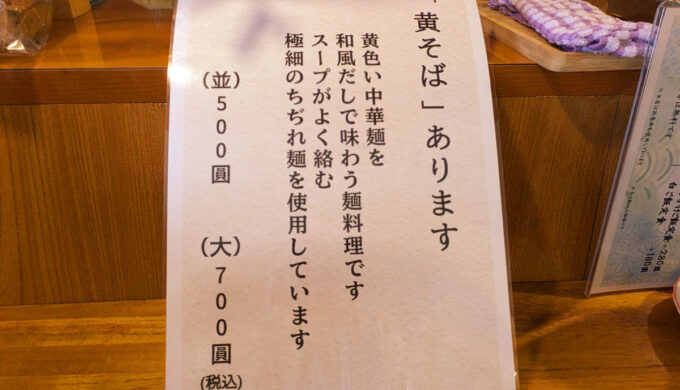 「黄そば」あります
黄色い中華麺を
和風だしで味わう麺料理です
スープがよく絡む
極細のちぢれ麺を使用しています
(並)500圓 (大)700圓
(税込)
白ご飯定食 +180圓